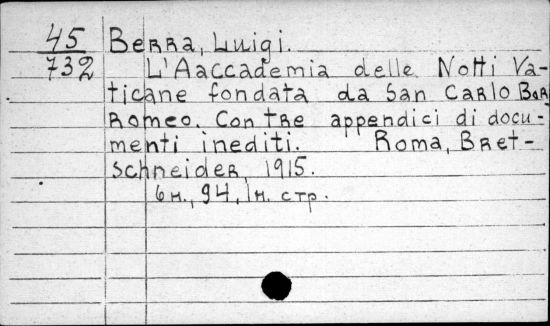 45 Berra, Luigi.
732 L'Aaccademia delle Notti Va-
ticane fondata da San Carlo Bor
Romeo. Con tre appendici di docu-
menti inediti. Roma, Bret-
schneider, 1915.
6 н., 94, 1 н. стр.